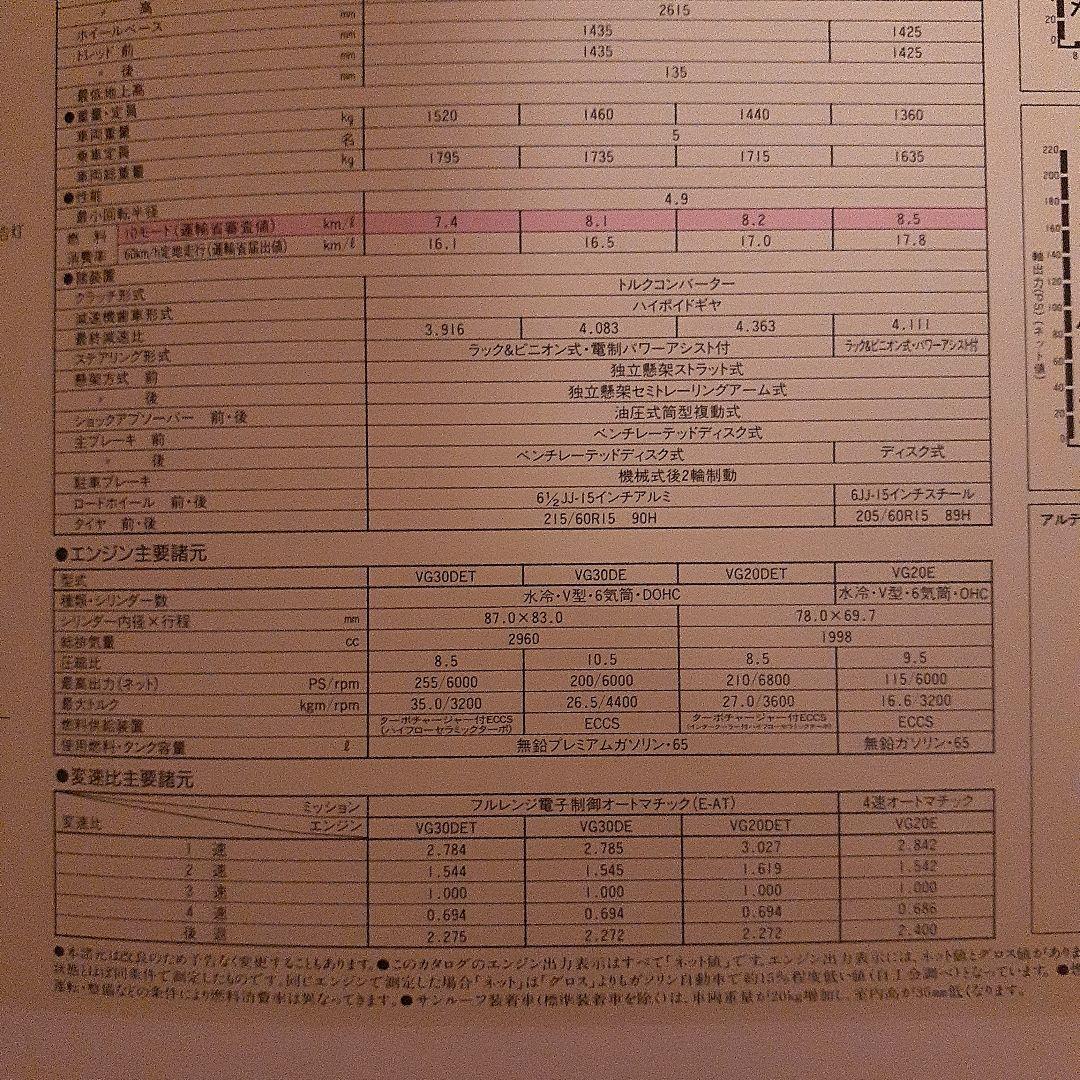 〃 高 mm
ホイールベース mm 2615
トレッド 前 mm 1435 1425
〃 後 mm 1435 1425
最低地上高 135
●重量・定員
車両重量 kg 1520 1460 1440 1360
乗車定員 名 5
車両総重量 kg 1795 1735 1715 1635
●性能
最小回転半径 4.9
燃料消費率 10モード(運輸省審査値) km/ℓ 7.4 8.1 8.2 8.5
60km/h定地走行(運輸省届出値) km/ℓ 16.1 16.5 17.0 17.8
●諸装置
クラッチ形式 トルクコンバーター
減速機歯車形式 ハイポイドギヤ
最終減速比 3.916 4.083 4.363 4.111
ステアリング形式 ラック&ピニオン式・電制パワーアシスト付 ラック&ピニオン式・パワーアシスト付
懸架方式 前 独立懸架ストラット式
〃 後 独立懸架セミトレーリングアーム式
ショックアブソーバー 前・後 油圧式筒型複動式
主ブレーキ 前 ベンチレーテッドディスク式
〃 後 ベンチレーテッドディスク式 ディスク式
駐車ブレーキ 機械式後2輪制動
ロードホイール 前・後 6½JJ-15インチアルミ 6JJ-15インチスチール
タイヤ 前・後 215/60R15 90H 205/60R15 89H
●エンジン主要諸元
型式 VG30DET VG30DE VG20DET VG20E
種類・シリンダー数 水冷・V型・6気筒・DOHC 水冷・V型・6気筒・OHC
シリンダー内径×行程 mm 87.0×83.0 78.0×69.7
総排気量 cc 2960 1998
圧縮比 8.5 10.5 8.5 9.5
最高出力(ネット) PS/rpm 255/6000 200/6000 210/6800 115/6000
最大トルク kgm/rpm 35.0/3200 26.5/4400 27.0/3600 16.6/3200
燃料供給装置 ターボチャージャー付ECCS(ハイフローセラミックターボ) ECCS ターボチャージャー付ECCS(インタークーラー付ハイフローセラミックターボ) ECCS
使用燃料・タンク容量 ℓ 無鉛プレミアムガソリン・65 無鉛ガソリン・65
●変速比主要諸元
ミッション フルレンジ電子制御オートマチック(E-AT) 4速オートマチック
変速比 エンジン VG30DET VG30DE VG20DET VG20E
1 速 2.784 2.785 3.027 2.842
2 速 1.544 1.545 1.619 1.542
3 速 1.000 1.000 1.000 1.000
4 速 0.694 0.694 0.694 0.686
後 退 2.275 2.272 2.272 2.400
●本諸元は改良のため予告なく変更することもあります。●このカタログのエンジン出力表示はすべて「ネット値」です。エンジン出力表示には、ネット値とグロス値があり
状態とほぼ同条件で測定したものです。同じエンジンで測定した場合「ネット」は「グロス」よりもガソリン自動車で約15%程度低い値(自工会調べ)となっています。
運転・整備などの条件により燃料消費率は異なってきます。●サンルーフ装着車(標準装着車を除く)は、車両重量が20kg増加し、室内高が35mm低くなります。
告灯
20
0
8
220
200
180
160
140
120
100
80
60
40
20
0
軸出力(PS)(ネット値)
アルテ